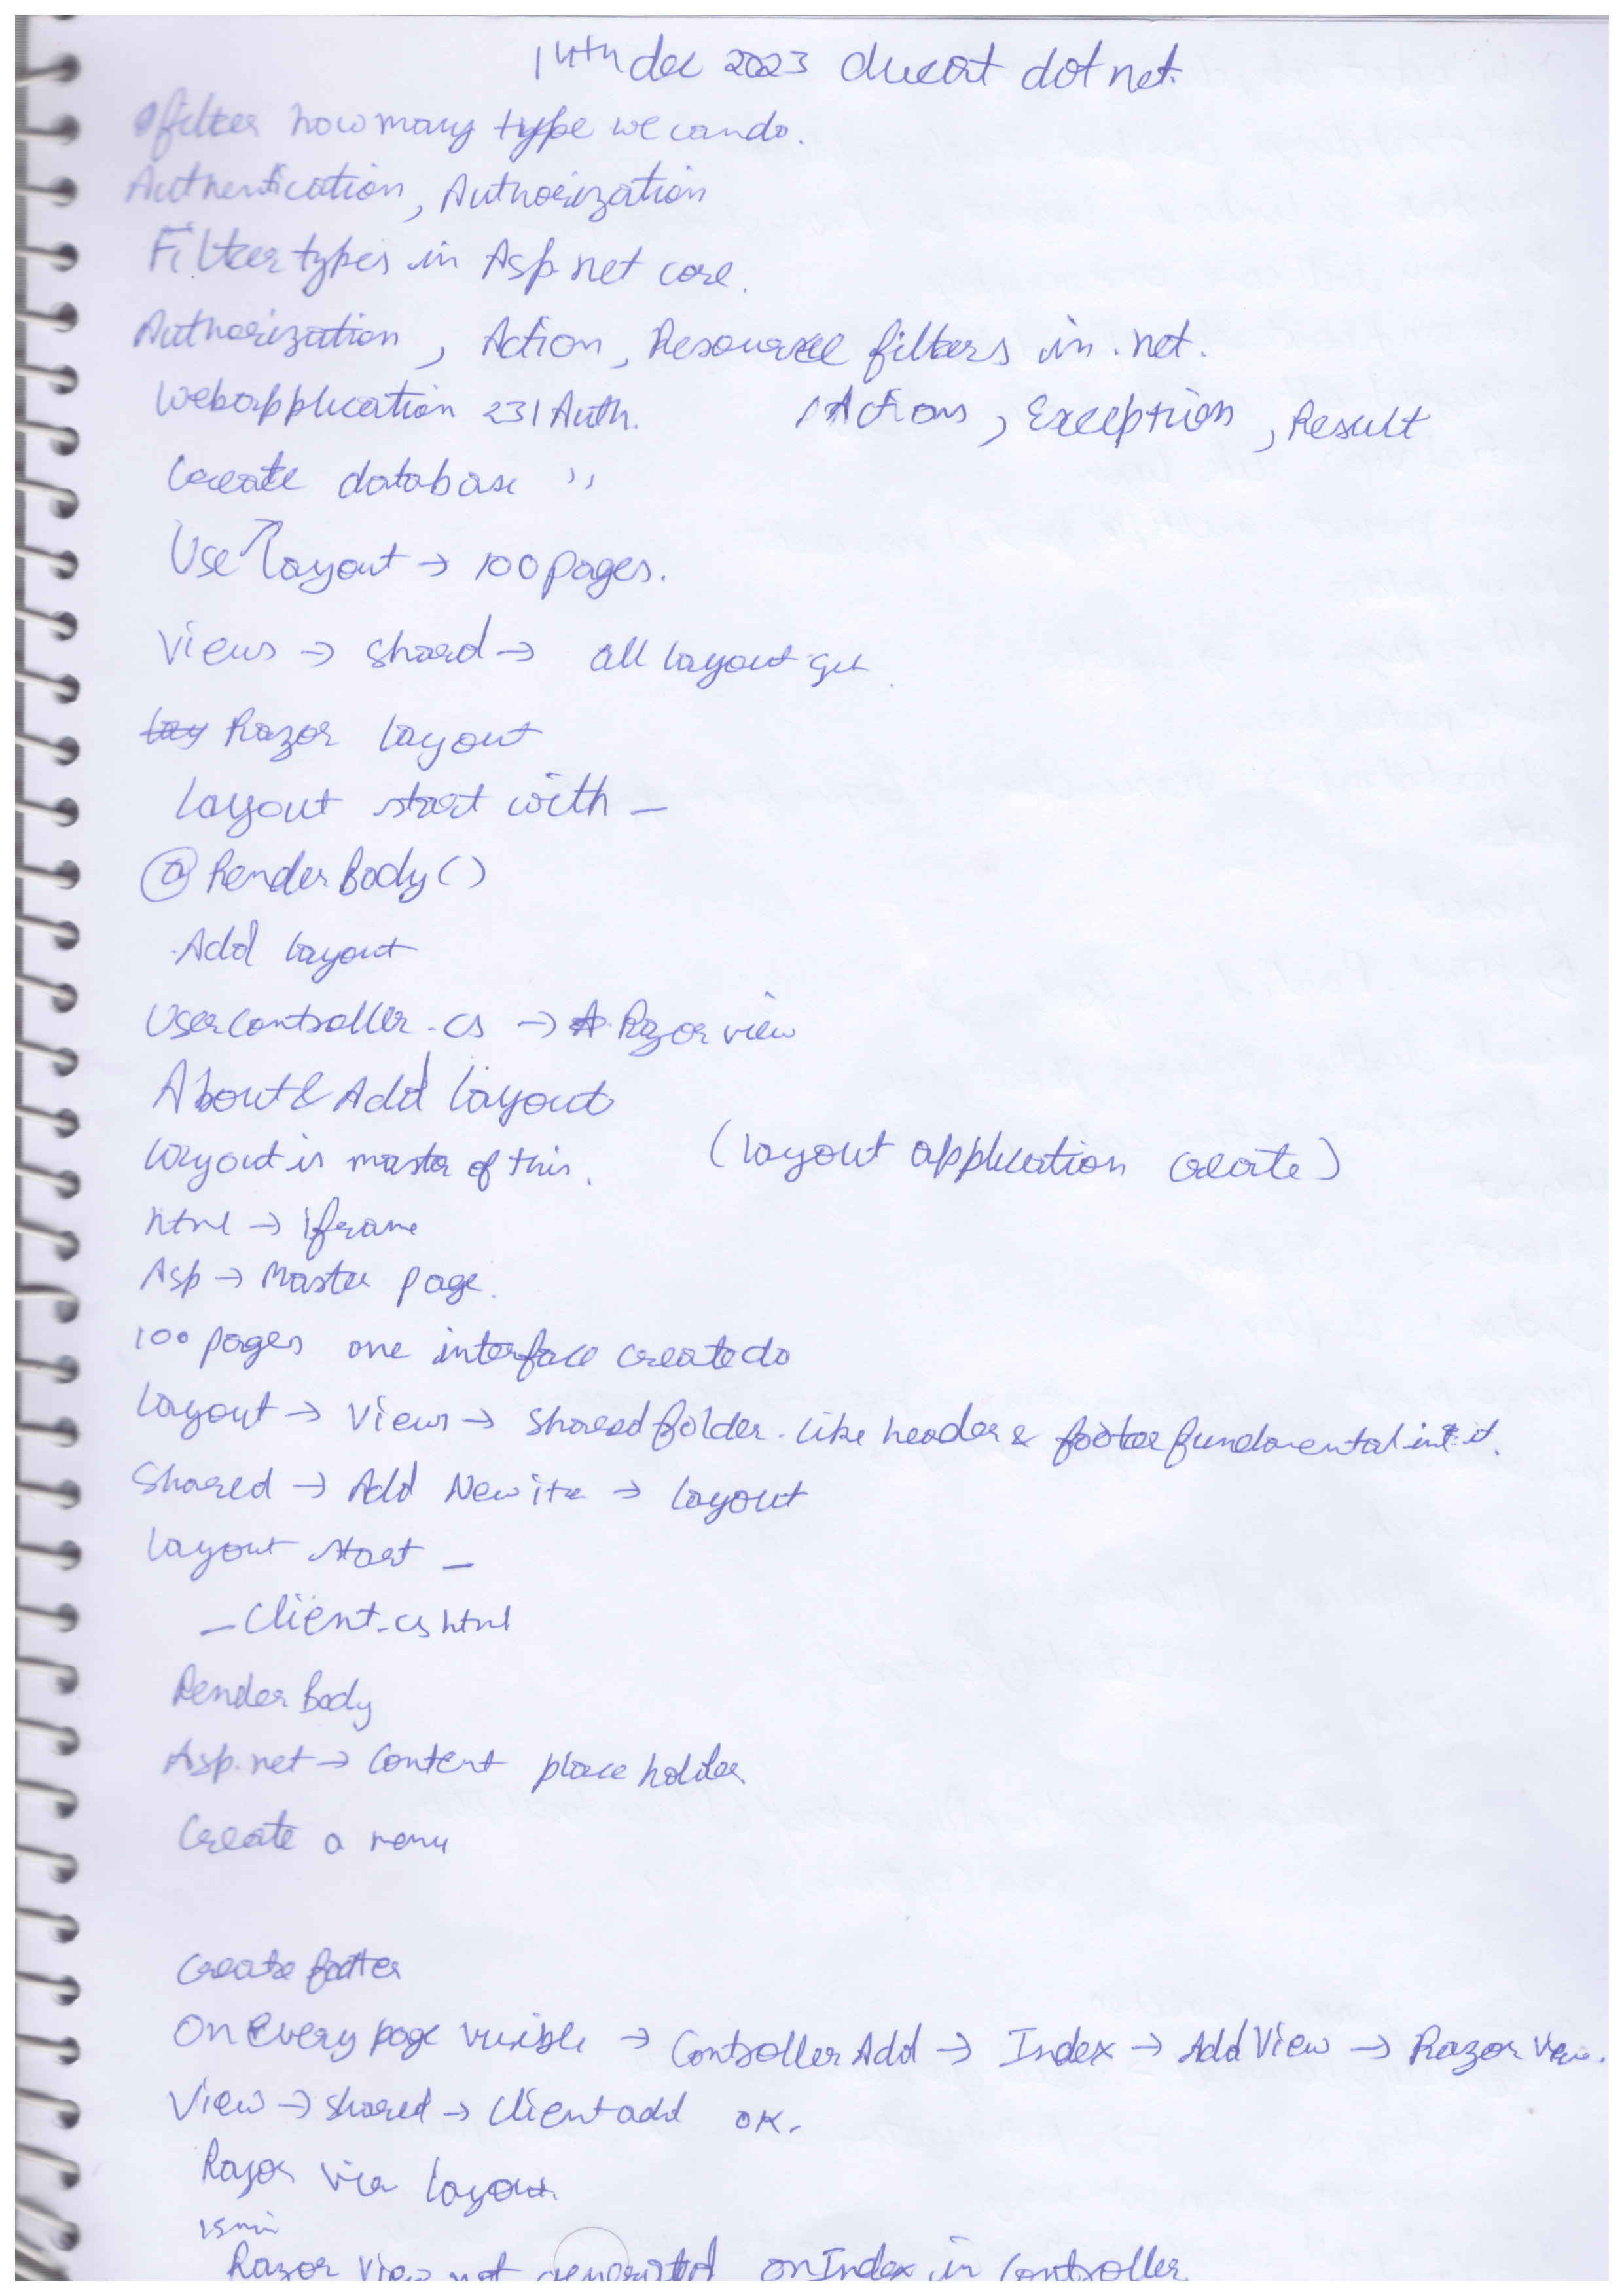 14th dec 2023 ducat dot net.
filter how many type we can do.
Authentication, Authorization
Filter types in Asp.net core.
Authorization, Action, Resource filters in .net.
Webapplication 231 Auth. Actions, Exception, Result
Create database ,,
Use layout → 100 pages.
Views → shared → all layout get.
Razor layout
layout start with _
@RenderBody()
Add layout
UserController.cs → Razor view
About & Add layout
layout is master of this. (layout application create)
html → iframe
Asp → Master page.
100 pages one interface create do
layout → Views → shared folder. like header & footer fundamental in it.
Shared → Add New ite → layout
layout start _
_Client.cshtml
Render Body
Asp.net → Content place holder
Create a menu
Create footer
On Every page visible → Controller Add → Index → Add View → Razor View.
View → shared → Client add OK.
Razor view layout.
15 min
Razor View not generated on Index in Controller